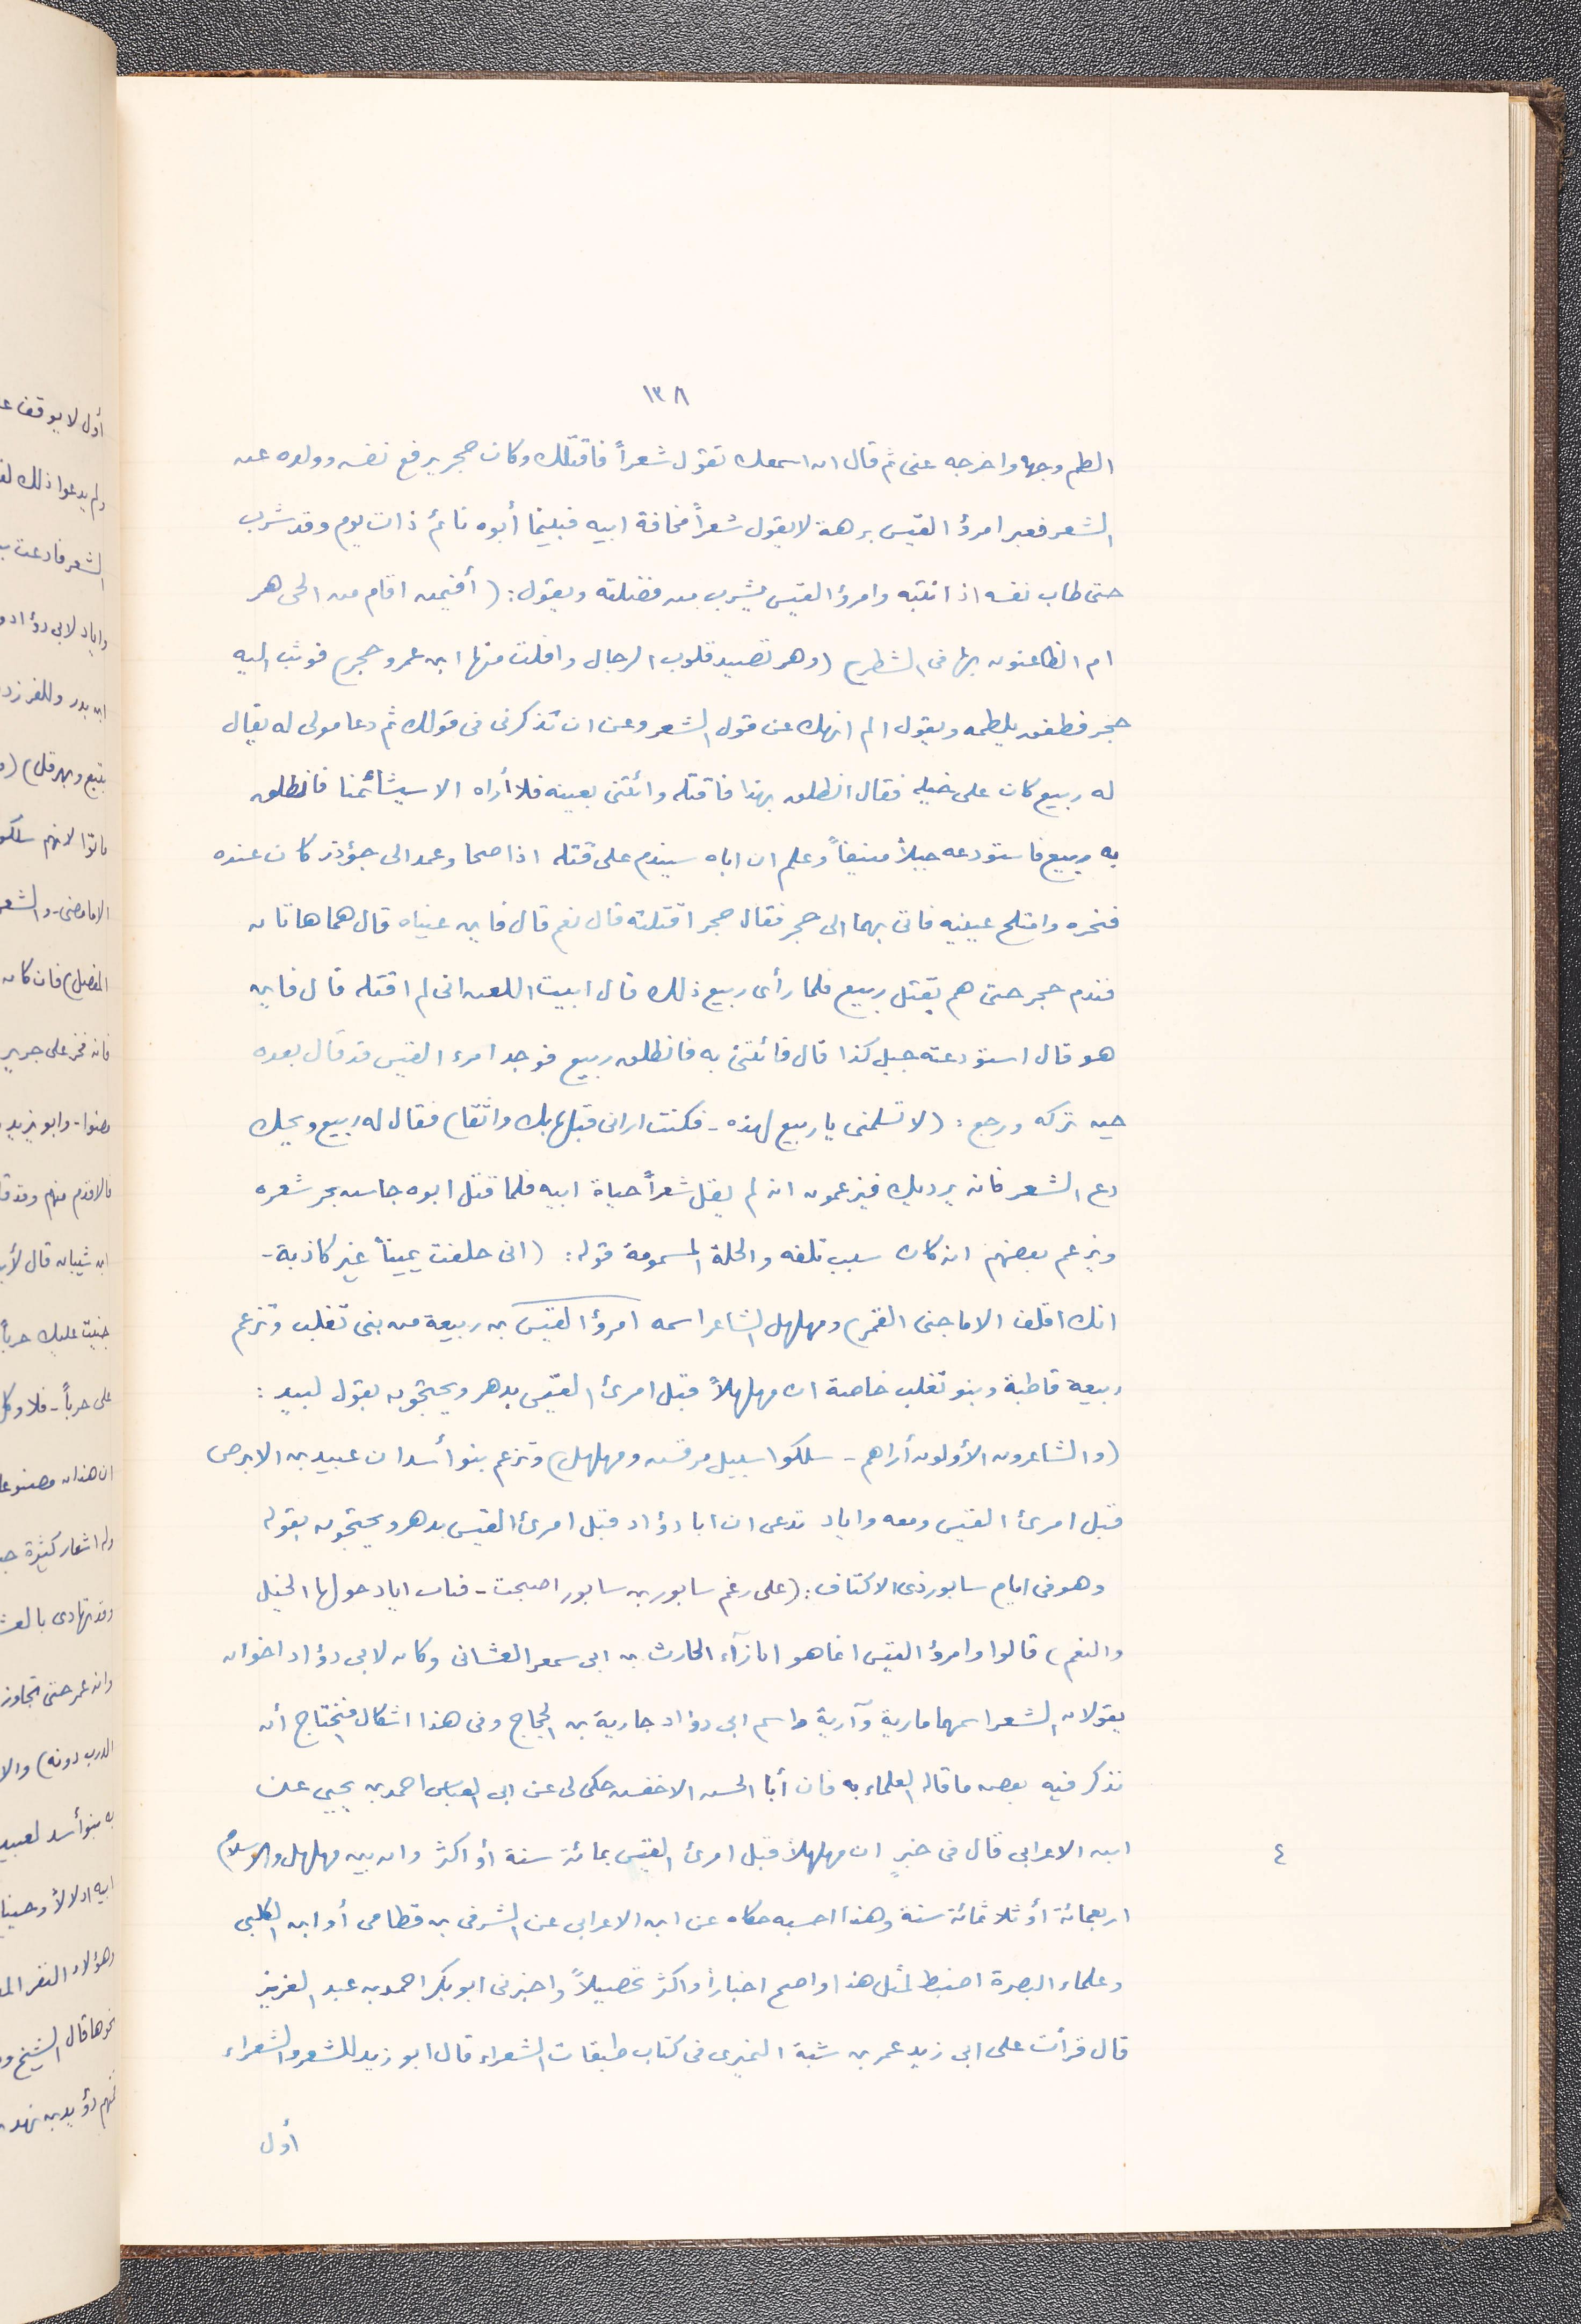 ١٣٨
الطم وجهه واخرجه عنى ثم قال ان اسمعك تقول شعراً فاقتلك وكان حجر يرفع نفسه وولده عن
الشعر فعبر امرؤ القيس برهة لا يقول شعراً مخافة ابيه فبينما أبوه نائم ذات يوم وقد شرب
حتى طاب نفسه اذ انتبه وامرؤ القيس يشرب من فضلته ويقول: (أفيمن اقام من الحى هر
ام الظاعنون بها فى الشطر) (وهر تصيد قلوب الرجال وافلت منها ابن عمرو حجر) فوثب اليه
حجر فطفق يلطمه ويقول الم انهك عن قول الشعر وعن ان تذكرنى فى قولك ثم دعا مولى له يقال
له ربيع كان على خيله فقال انطلق بهذا فاقتله وائتنى بعينه فلا أراه الا سيشأئمنا فانطلق
به ربيع فاستودعه جبلاً منيفاً وعلم ان اباه سيندم على قتله اذا صحا وعمد الى جؤذر كان عنده
فنحره وامتلح عينيه فاتى بهما الى حجر فقال حجر اقتلته قال نعم قال فاين عيناه قال هما هاتان
فندم حجر حتى هم بقتل ربيع فلما رأى ربيع ذلك قال ابيت اللعن انى لم اقتله قال فاين
هو قال استودعته جبل كذا قال فائتنى به فانطلق ربيع فوجد امرء القيس قد قال بعده
حين تركه ورجع: (لا تسلمنى يا ربيع لهذه - فكنت ارانى قبلها بك واثقا) فقال له ربيع ويحك
دع الشعر فانه يرديك فيزعمون انه لم يقل شعراً حياة ابيه فلما قتل ابوه جاش بحر شعره
ويزعم بعضهم انه كان سبب تلفه والحلة المسمومة قوله: (انى حلفت يميناً غير كاذبة -
انك اقلف الا ما جنى القمر) ومهلهل الشاعر اسمه امرؤ القيس بن ربيعة من بنى تغلب وتزعم
ربيعة قاطبة وبنو تغلب خاصة ان مهلهلاً قبل امرئ القيس بدهر ويحتجون بقول لبيد:
(والشاعرون الأولون أراهم - سلكوا سبيل مرقش ومهلهل) وتزعم بنو أسد ان عبيد بن الابرص
قبل امرئ القيس ومعه واياد تدعى ان ابا دؤاد قبل امرئ القيس بدهر ويحتجون بقوله
وهو فى ايام سابور ذى الاكتاف: (على رغم سابور بن سابور اصبحت - قباب اياد حولها الخيل
والنعم) قالوا وامرؤ القيس انما هو بازآء الحارث بن ابى سمعر الغسانى وكان لابى دؤاد اخوان
يقولان الشعر اسمهما مارية وآرية واسم ابى دؤاد جارية بن الحجاج وفى هذا اشكال فنحتاج أن
نذكر فيه بعض ما قاله العلماء به فان أبا الحسن الاخفش حكى لى عن ابى العباس احمد بن يحيى عن
ابن الاعرابى قال فى خبرٍ ان مهلهلاً قبل امرئ القيس بمائة سنة أو اكثر وان بين مهلهل والاسلام
٤
اربعمائة أو ثلاثمائة سنة وهذا احسبه حكاه عن ابن الاعرابى عن الشرقى بن قطامى أو ابن الكلبى
وعلماء البصرة اضبط لمثل هذا واصح اخباراً واكثر تحصيلاً واخبرنى ابو بكر احمد بن عبد العزيز
قال قرأت على ابى زيد عمر بن شبة النميرى فى كتاب طبقات الشعراء قال ابو زيد للشعر والشعراء
أول